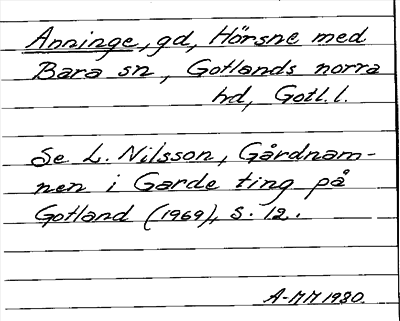 Anninge, gd, Hörsne med
Bara sn, Gotlands norra
hd, Gotl. l.
Se L. Nilsson, Gårdnam-
nen i Garde ting på
Gotland (1969), s. 12.
A-MM 1980.